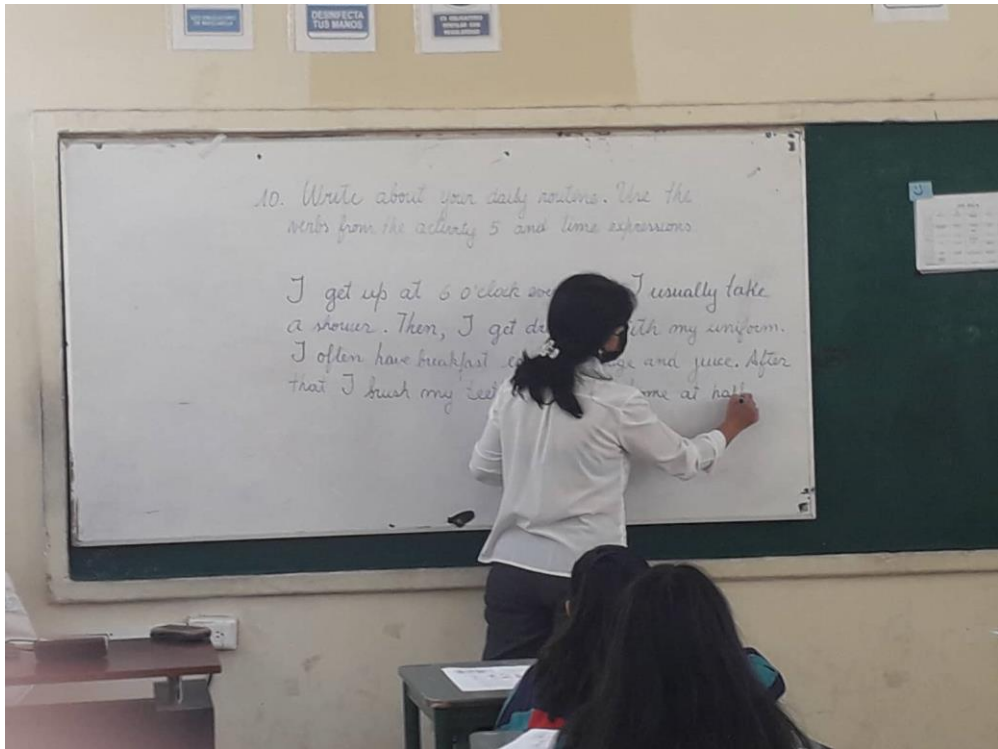 DESINFECTA
TUS MANOS
10. Write about your daily routine. Use the
verbs from the activity 5 and time expressions
I get up at 6 o'clock I usually take
a shower. Then, I get with my uniform.
I often have breakfast and juice. After
that I brush my at